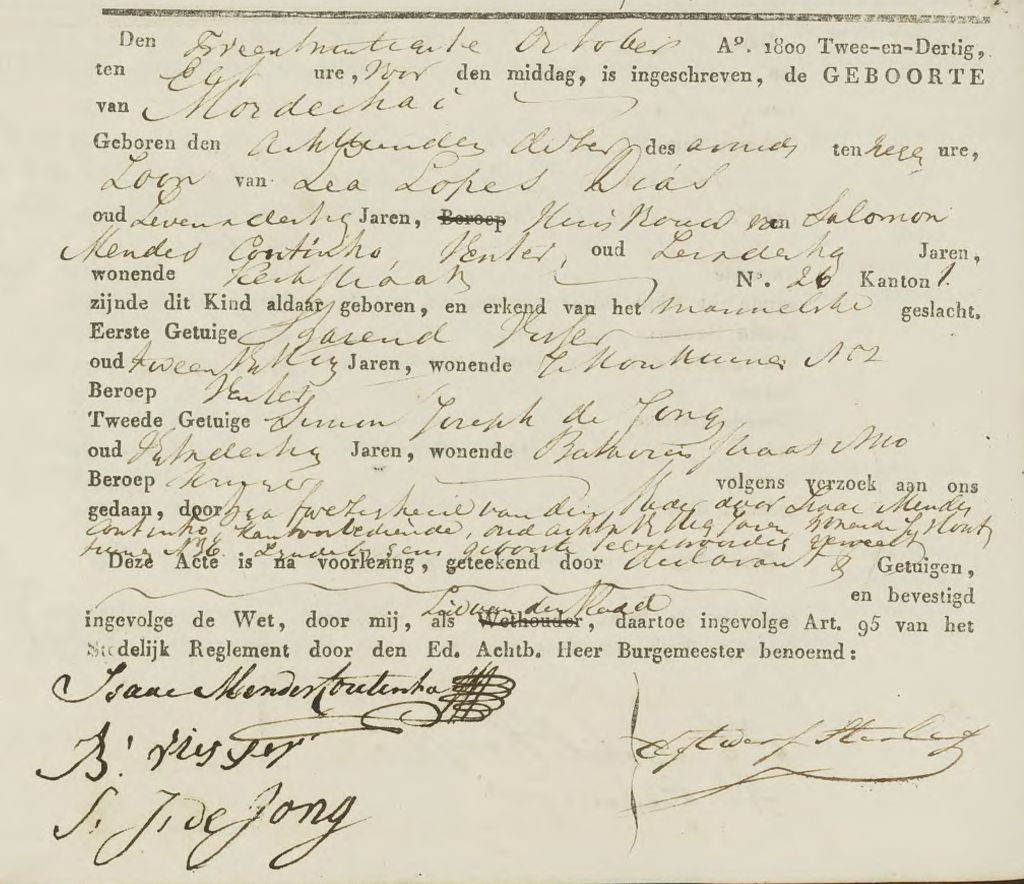 Den Tweentwintigste October Aº. 1800 Twee-en-Dertig,
ten Elf ure, Voor den middag, is ingeschreven, de GEBOORTE
van Mordechai
Geboren den dezer des avonds ten negen ure,
Zoon van Lea Lopes Dias
oud Jaren, Beroep Huisvrouw van Salomon
Mendes Coutinho, Venter, oud Jaren,
wonende Kerkstraat Nº. 26 Kanton 1.
zijnde dit Kind aldaar geboren, en erkend van het mannelijke geslacht.
Eerste Getuige Barend Visser
oud Jaren, wonende Houttuinen No 2
Beroep Venter
Tweede Getuige Simon Joseph de Jong
oud Jaren, wonende Batavier straat No
Beroep Kruijer volgens verzoek aan ons
gedaan, door afwezigheid van den Vader door Isaac Mendes
Coutinho, Kantoorbediende, oud jaren wonende Hout
tuinen No 6. geboorte tegenwoordig geweest
Deze Acte is na voorlezing, geteekend door declarant & Getuigen,
en bevestigd
Lid van den Raad
ingevolge de Wet, door mij, als Wethouder, daartoe ingevolge Art. 95 van het
Stedelijk Reglement door den Ed. Achtb. Heer Burgemeester benoemd:
Isaac Mendes Coutinho
B. Visser
S. J. de Jong